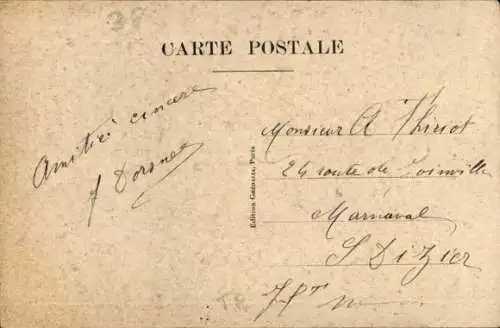 38
CARTE POSTALE
Amitié cincère
J Dorsner
Edition Paris
Monsieur A Thiriot
24 route de Joinville
Marnaval
S Dizier
Hte M